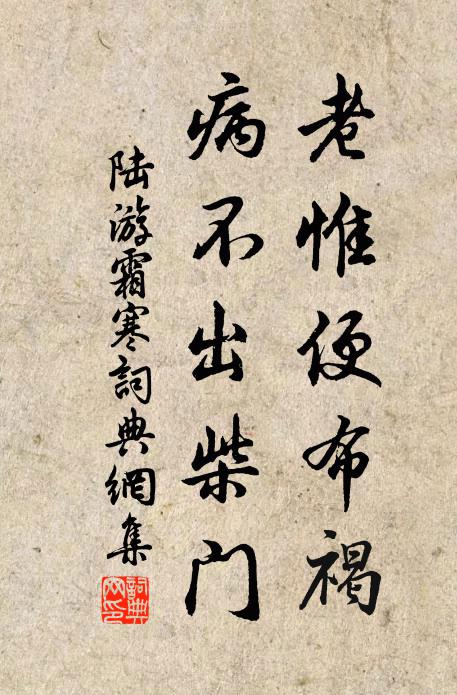 老惟便布褐
病不出柴门
陆游霜寒詞典網集
詞典网印